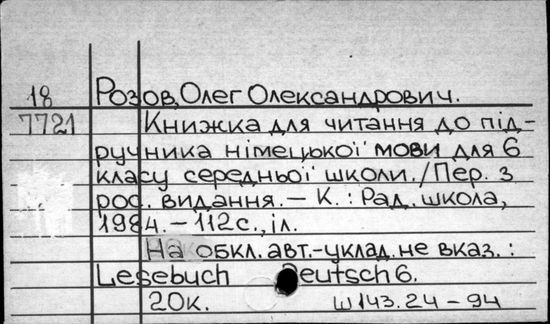 18 Розов, Олег Олександрович.
7721 Книжка для читання до під-
ручника німецької мови для 6
класу середньої школи. /Пер. з
рос. видання. – К. : Рад. школа,
1984. – 112с., іл.
На обкл. авт.-уклад. не вказ. :
Lesebuch Deutsch 6.
20к. Ш143.24 – 94